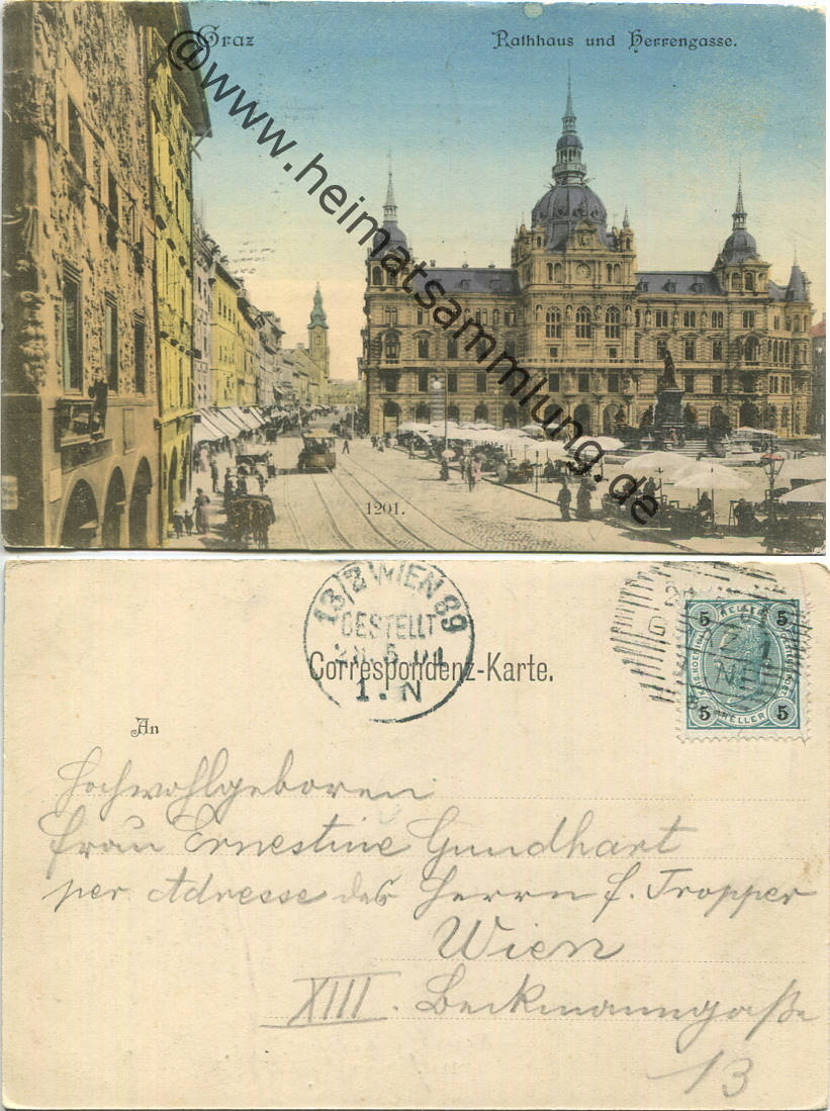 Graz
Rathhaus und Herrengasse.
@www.heimatsammlung.de
1201.
13/2 WIEN 89
BESTELLT
1. N
Correspondenz-Karte.
5 5
5 HELLER 5
An
Hochwohlgeboren
Frau Ernestine Gundhart
per Adresse des Herrn f. Tropper
Wien
XIII. Beckmanngaße
13